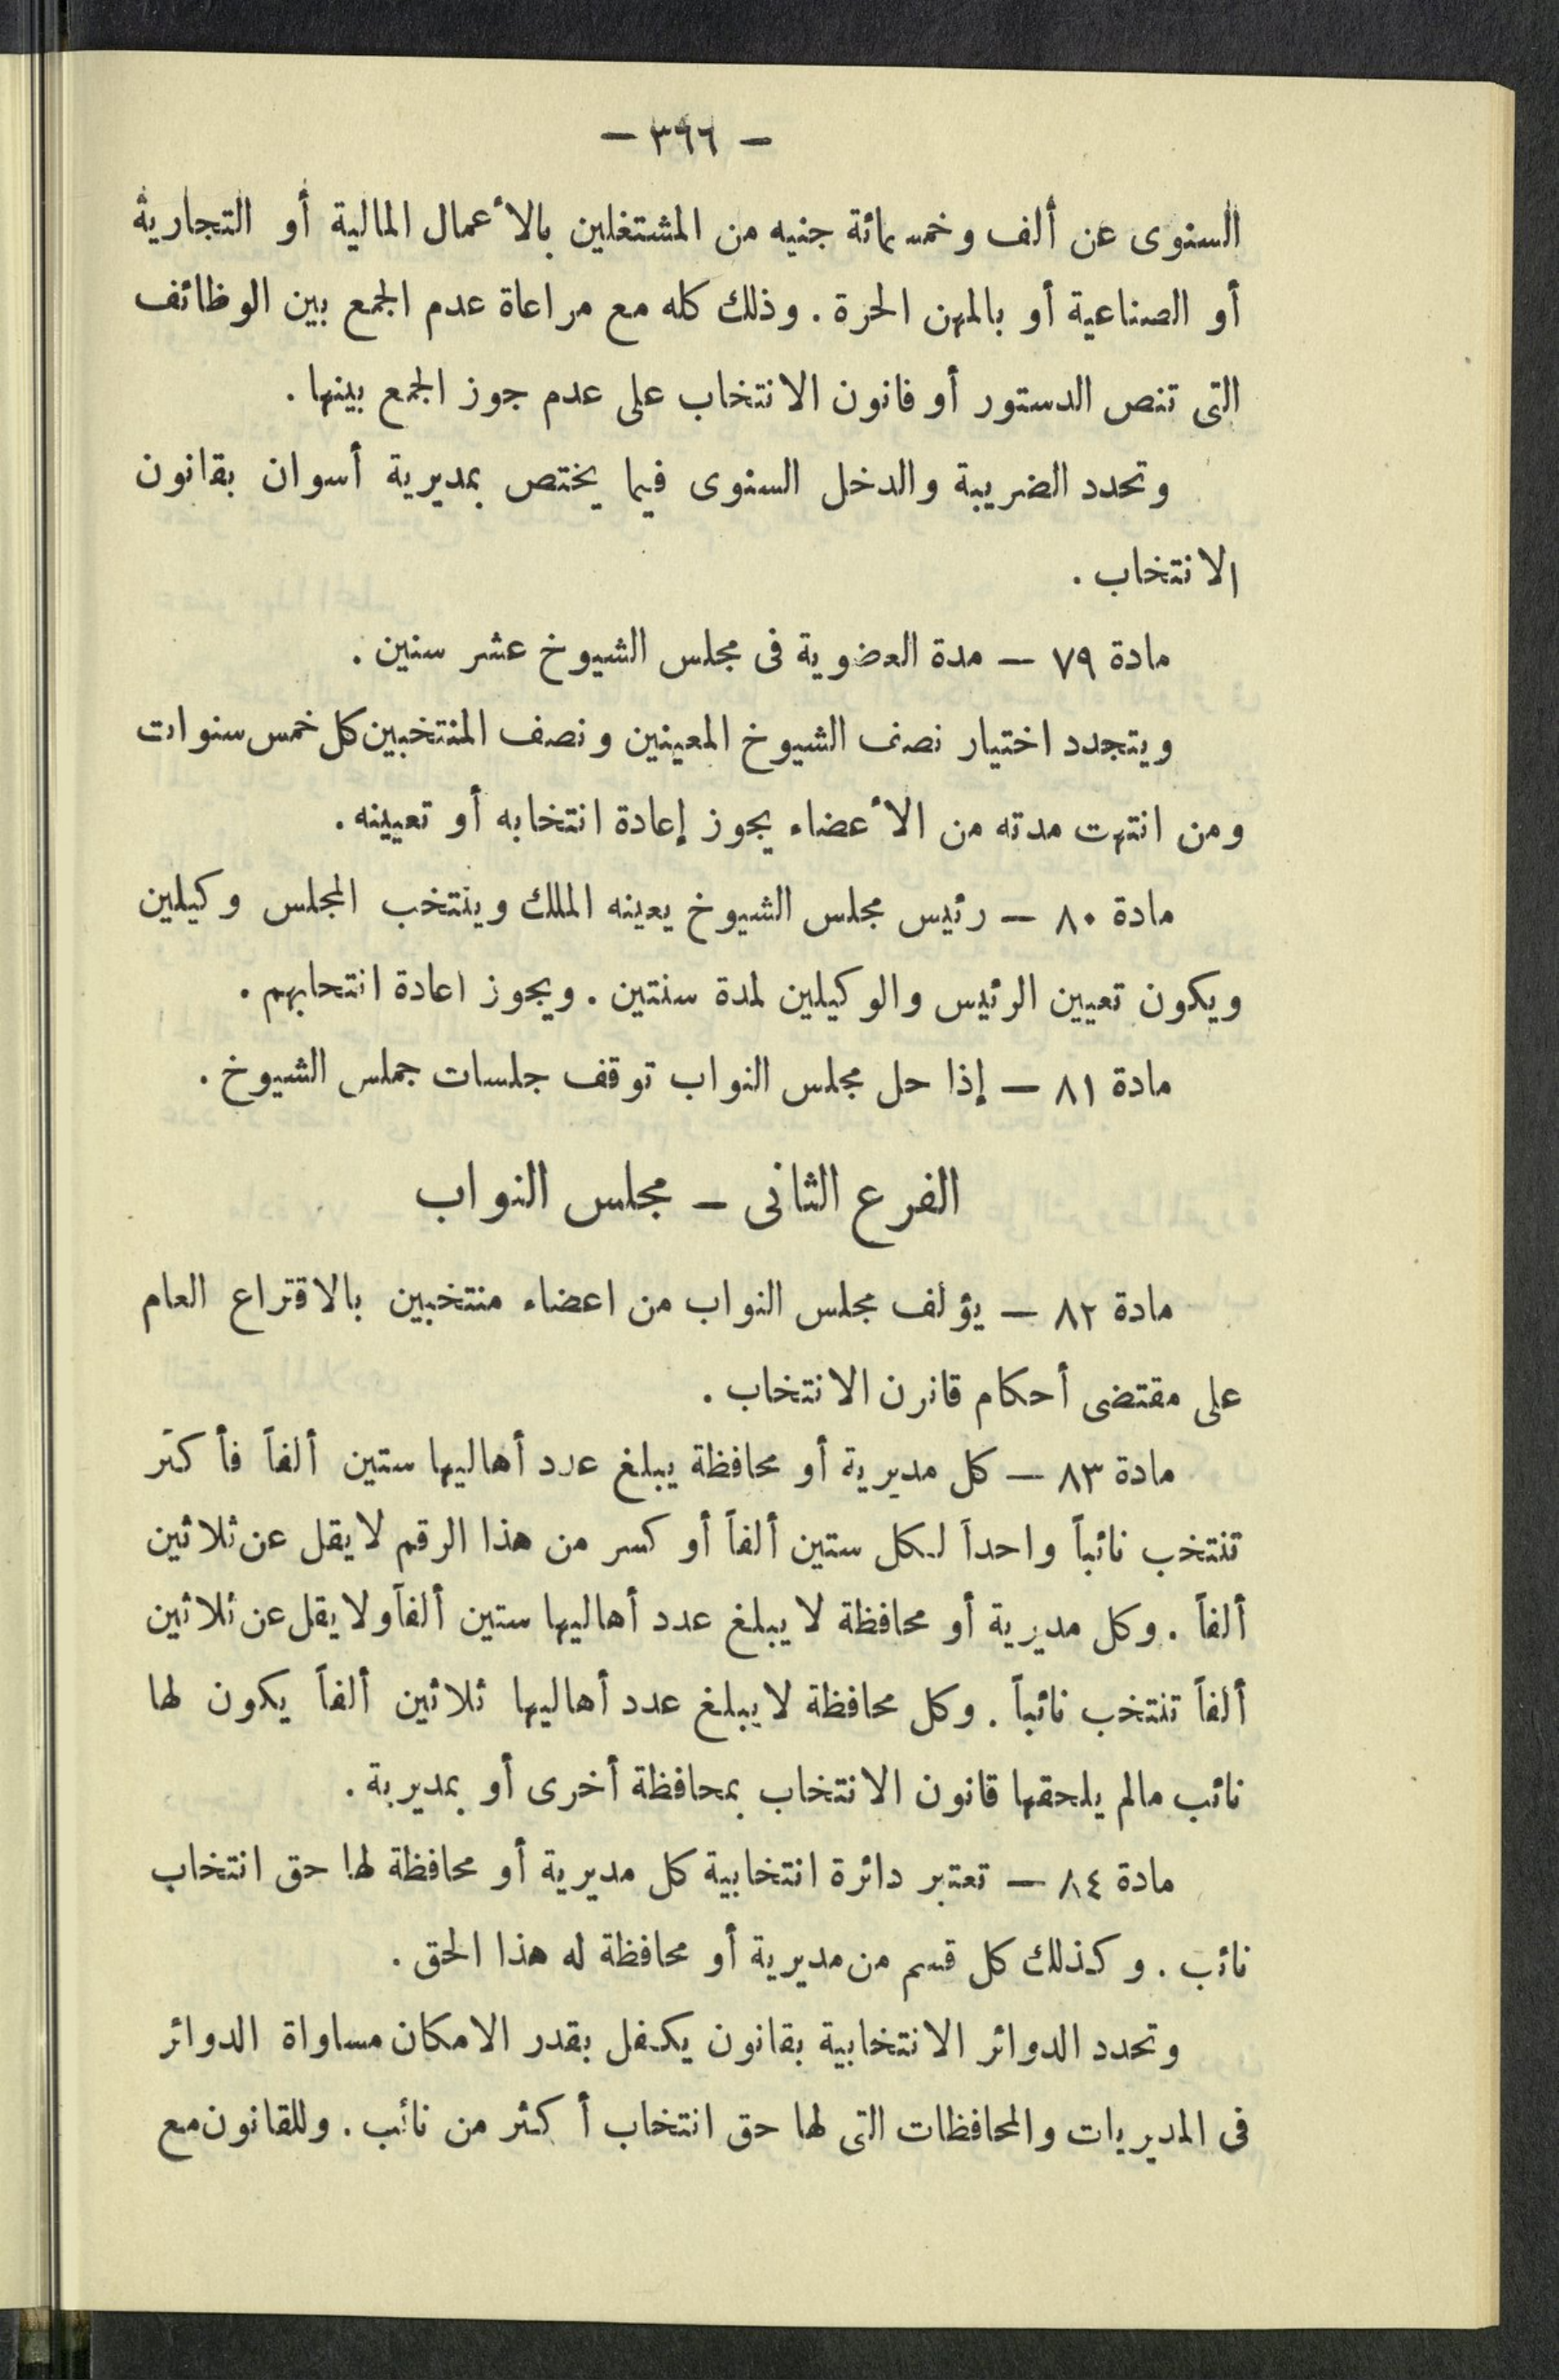 — ٣٦٦ —
السنوى عن ألف وخمسمائة جنيه من المشتغلين بالأعمال المالية أو التجارية
أو الصناعية أو بالمهن الحرة . وذلك كله مع مراعاة عدم الجمع بين الوظائف
التى تنص الدستور أو قانون الانتخاب على عدم جوز الجمع بينها .
وتحدد الضريبة والدخل السنوى فيما يختص بمديرية أسوان بقانون
الانتخاب .
مادة ٧٩ — مدة العضوية فى مجلس الشيوخ عشر سنين .
ويتجدد اختيار نصف الشيوخ المعينين ونصف المنتخبين كل خمس سنوات
ومن انتهت مدته من الأعضاء يجوز إعادة انتخابه أو تعيينه .
مادة ٨٠ — رئيس مجلس الشيوخ يعينه الملك وينتخب المجلس وكيلين
ويكون تعيين الرئيس والوكيلين لمدة سنتين . ويجوز اعادة انتحابهم .
مادة ٨١ — إذا حل مجلس النواب توقف جلسات جملس الشيوخ .
الفرع الثانى — مجلس النواب
مادة ٨٢ — يؤلف مجلس النواب من اعضاء منتخبين بالاقتراع العام
على مقتضى أحكام قانرن الانتخاب .
مادة ٨٣ — كل مديرية أو محافظة يبلغ عدد أهاليها ستين ألفاً فأكثر
تنتخب نائباً واحداً لكل ستين ألفاً أو كسر من هذا الرقم لا يقل عن ثلاثين
ألفاً . وكل مديرية أو محافظة لا يبلغ عدد أهاليها ستين ألفاً ولا يقل عن ثلاثين
ألفاً تنتخب نائباً . وكل محافظة لا يبلغ عدد أهاليها ثلاثين ألفاً يكون لها
نائب مالم يلحقها قانون الانتخاب بمحافظة أخرى أو بمديرية .
مادة ٨٤ — تعتبر دائرة انتخابية كل مديرية أو محافظة لها حق انتخاب
نائب . وكذلك كل قسم من مديرية أو محافظة له هذا الحق .
وتحدد الدوائر الانتخابية بقانون يكفل بقدر الامكان مساواة الدوائر
فى المديريات والمحافظات التى لها حق انتخاب أكثر من نائب . وللقانون مع